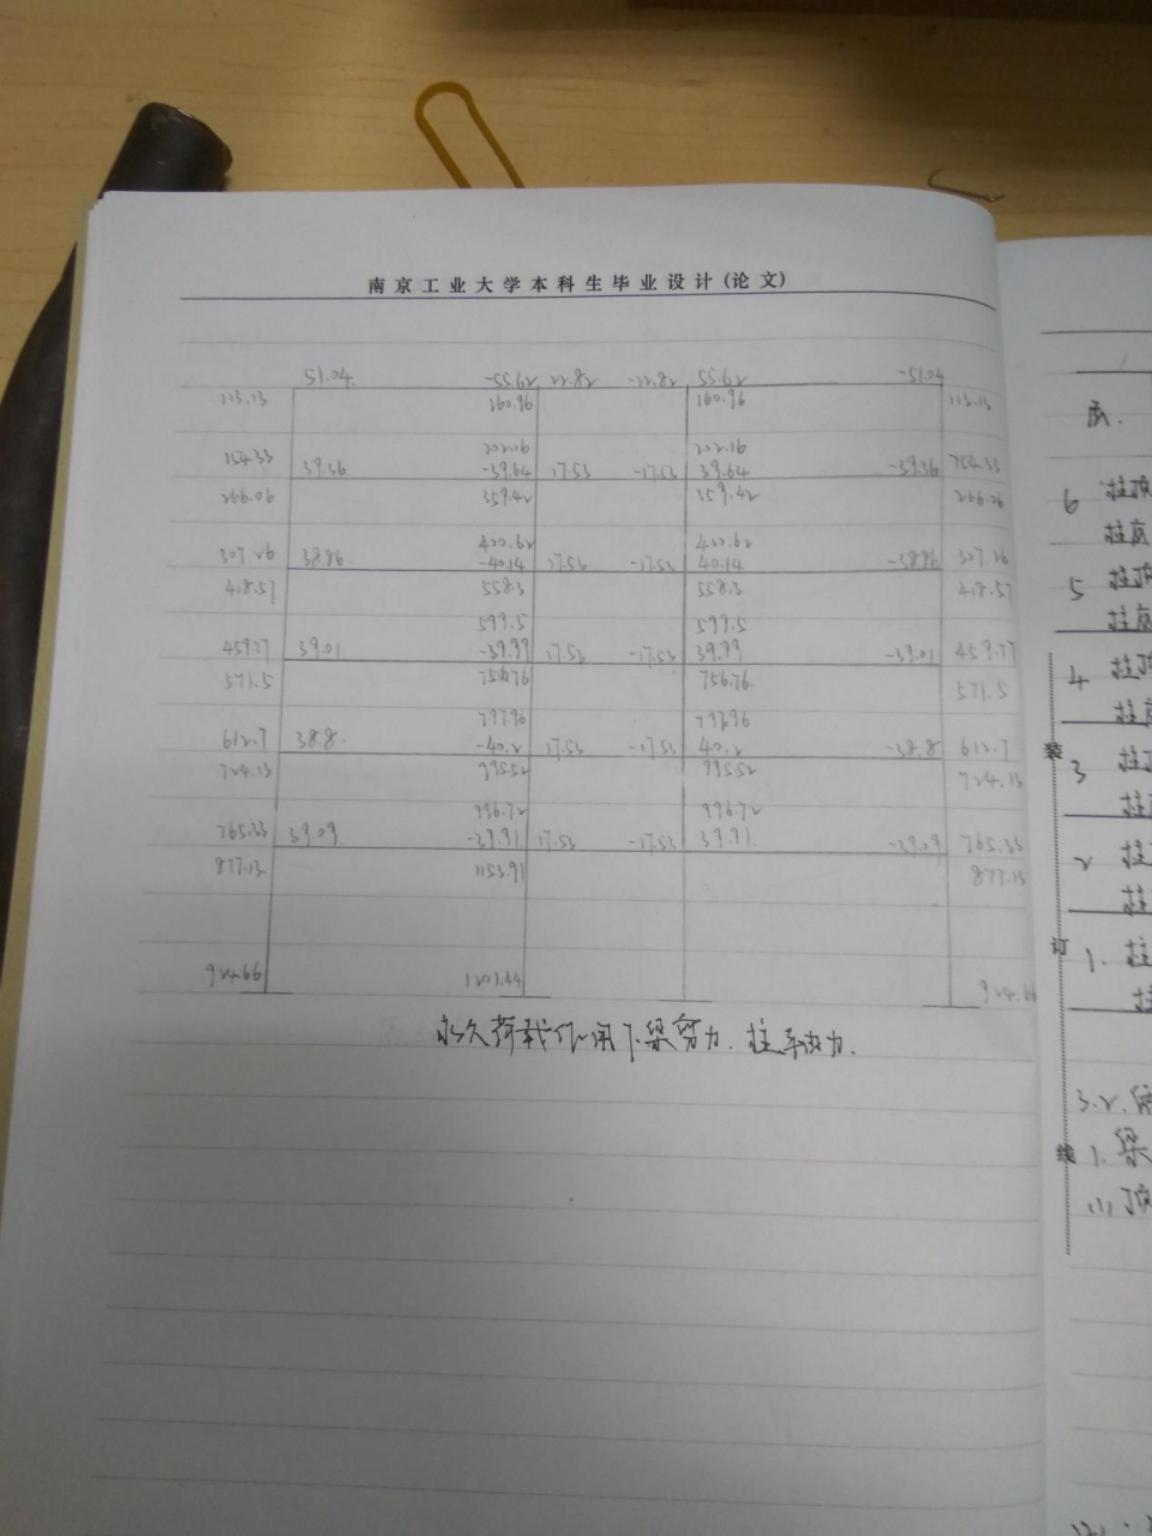 南京工业大学本科生毕业设计(论文)
51.04 -55.62 22.82 -22.82 55.62 -51.04
113.13 160.96 160.96 113.13
202.16 202.16
154.33 39.36 -39.64 17.53 -17.53 39.64 -39.36 154.33
266.06 359.42 359.42 266.06
400.62 400.62
307.26 38.86 -40.14 17.53 -17.53 40.14 -38.86 307.26
418.57 558.3 558.3 418.57
599.5 599.5
459.77 39.01 -39.99 17.53 -17.53 39.99 -39.01 459.77
571.5 756.76 756.76 571.5
797.96 797.96
612.7 38.8 -40.2 17.53 -17.53 40.2 -38.8 612.7
724.13 995.52 995.52 724.13
996.72 996.72
765.33 39.09 -39.91 17.53 -17.53 39.91 -39.09 765.33
877.13 1153.91 877.13
924.66 1201.44 924.66
永久荷载作用下梁剪力.柱轴力.
6 柱顶
柱底
5 柱顶
柱底
4 柱顶
柱底
装
3 柱顶
柱底
2 柱
柱
订
1. 柱
柱
3.2.
线
1. 梁
(1) 顶